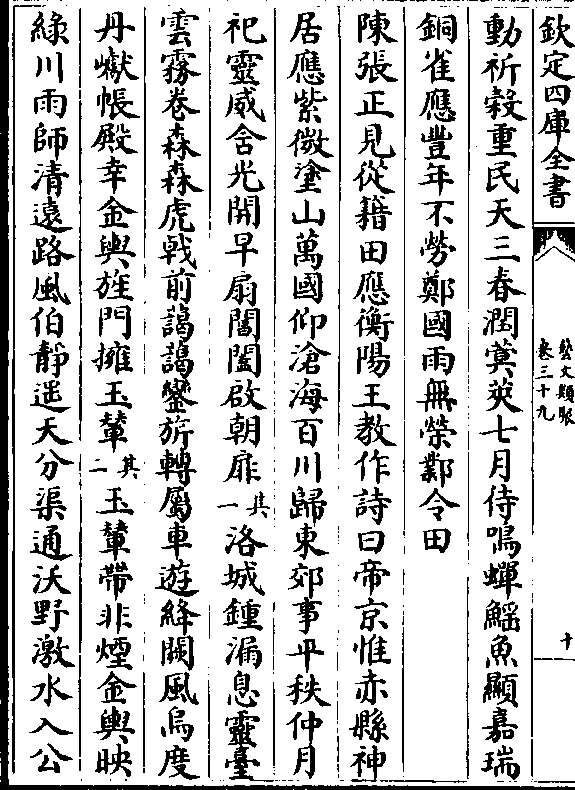 欽定四庫全書
藝文類聚
卷三十九
十
動祈穀重民天三春潤蓂莢七月侍鳴蟬鰩魚顯嘉瑞
銅雀應豐年不勞鄭國雨無榮鄴令田
陳張正見從籍田應衡陽王教作詩曰帝京惟赤縣神
居應紫微塗山萬國仰滄海百川歸東郊事平秩仲月
祀靈威含光開早扇閶闔啟朝扉其一洛城鍾漏息靈臺
雲霧卷森森虎戟前藹藹鑾旂轉屬車遊絳闕風烏度
丹巘帳殿幸金輿旌門擁玉輦其二玉輦帶非煙金輿映
綠川雨師清遠路風伯靜遥天分渠通沃野激水入公